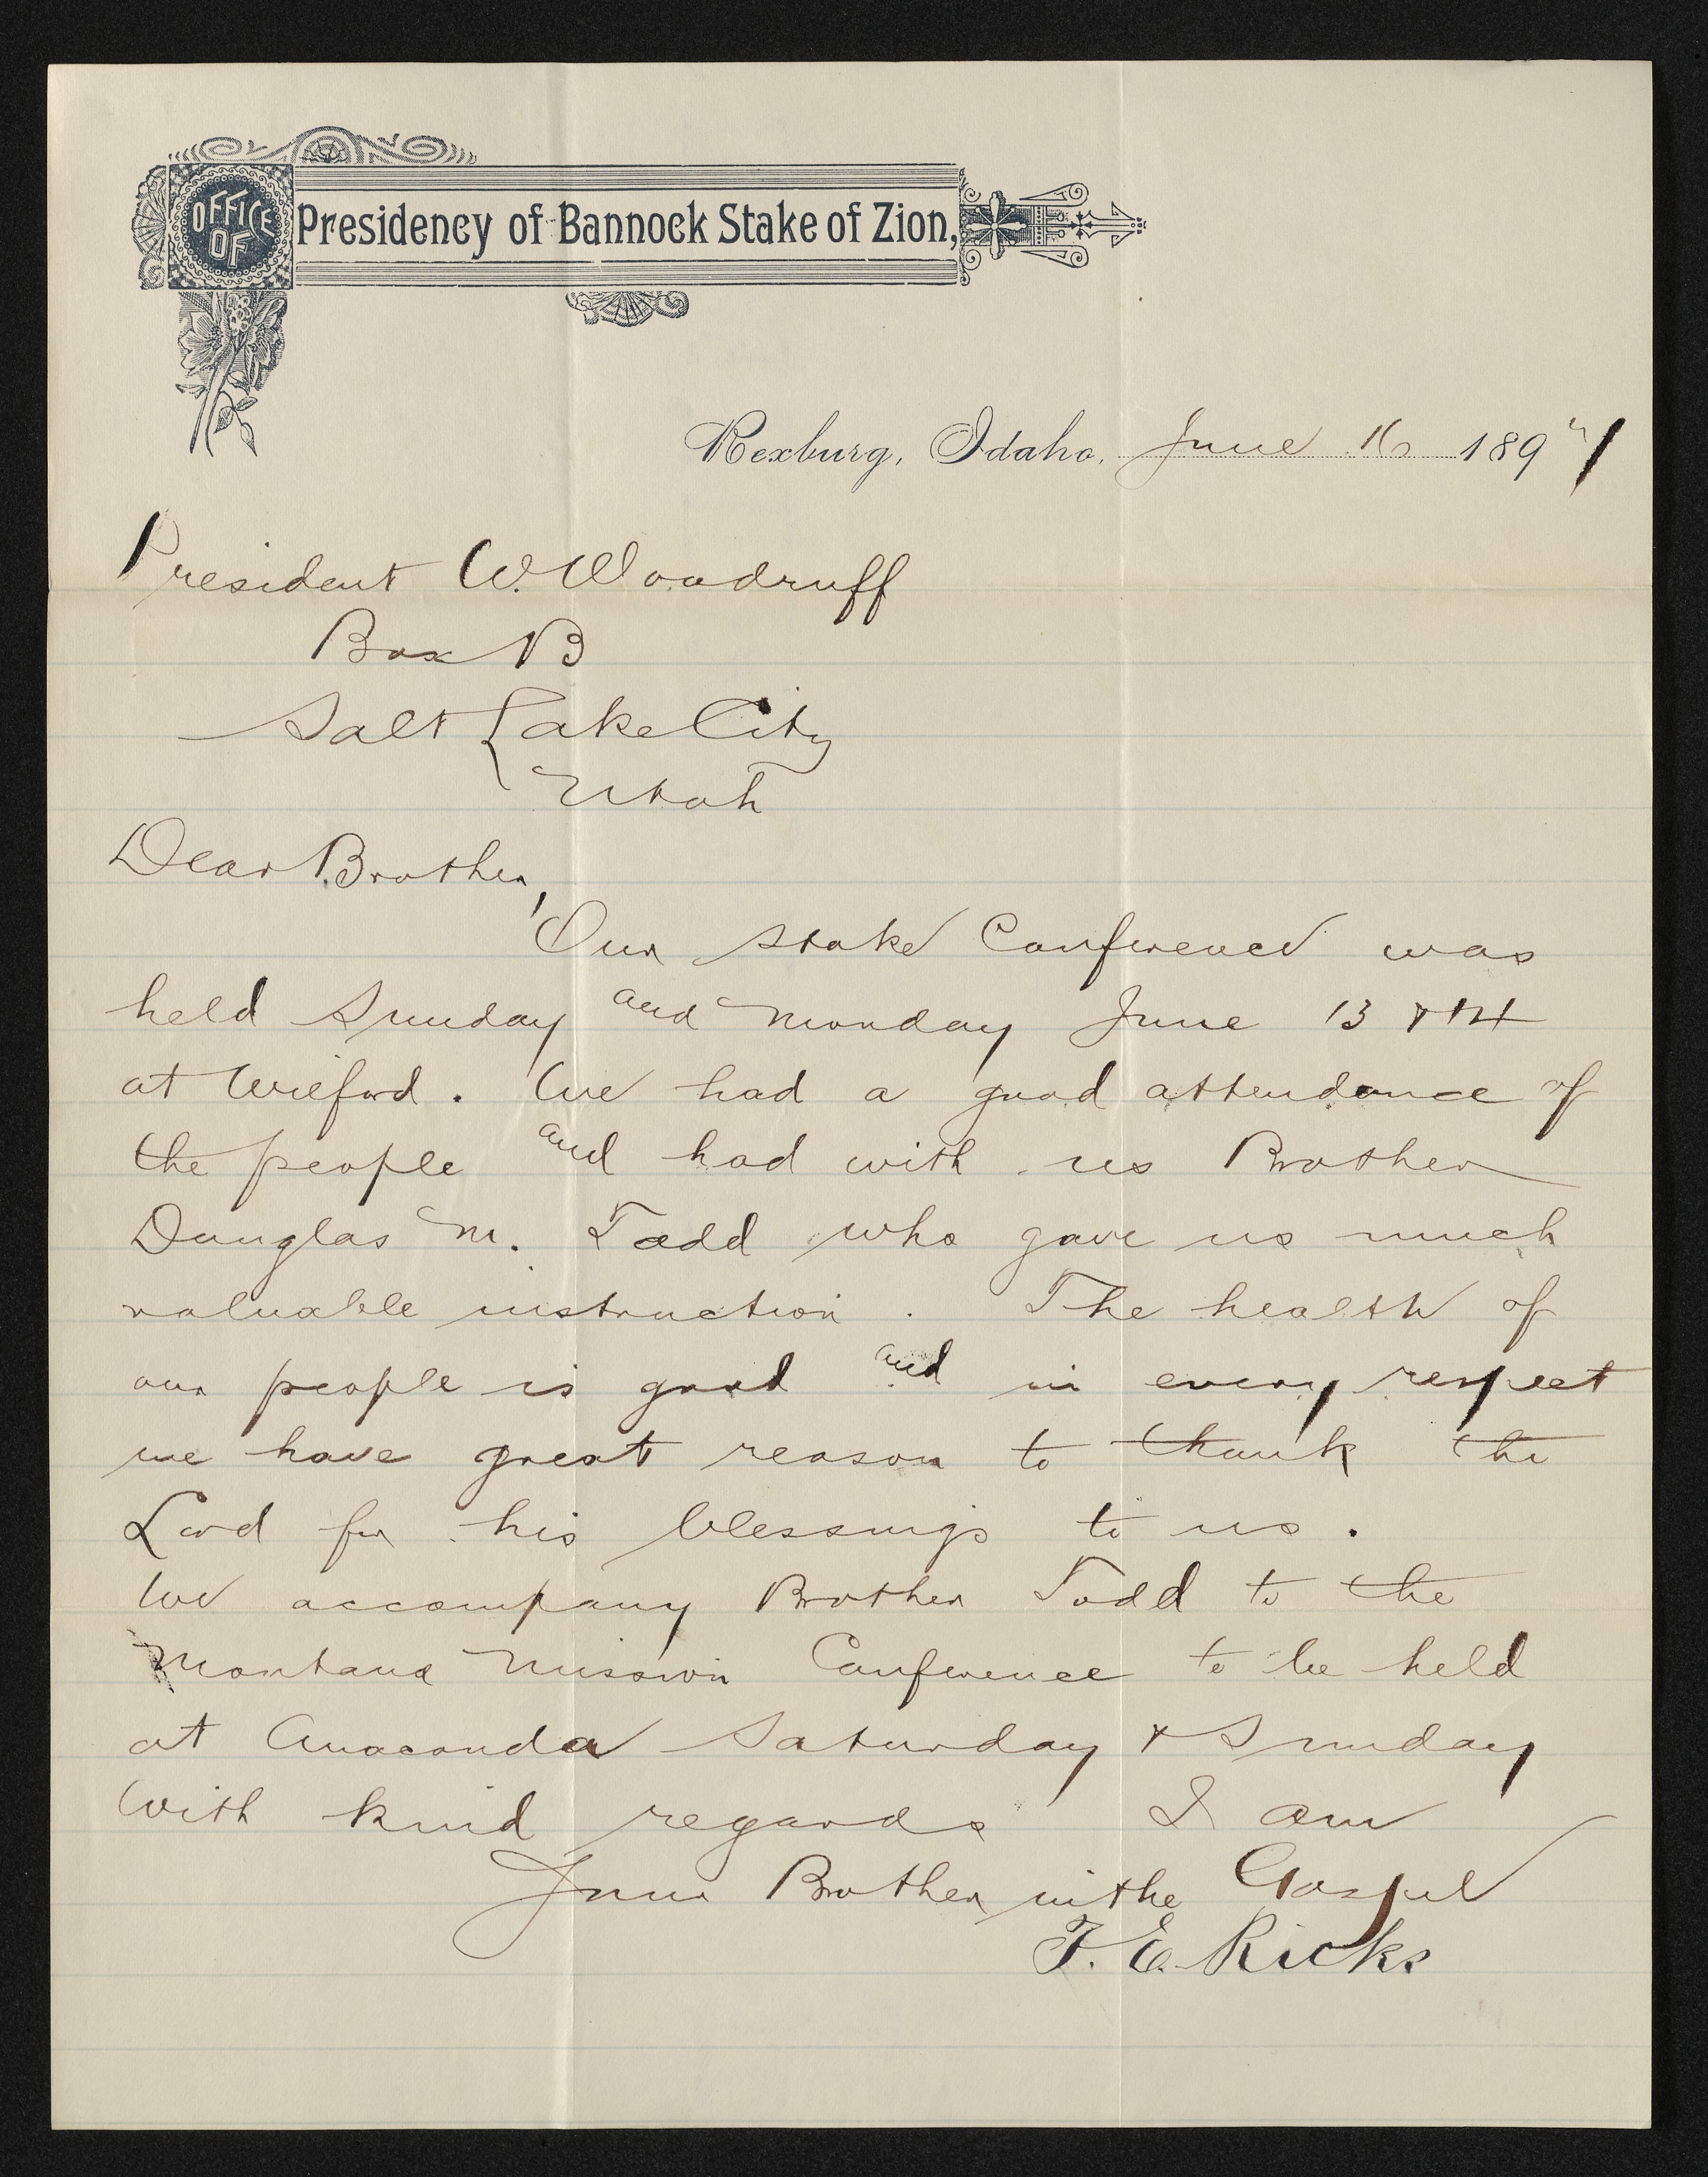 OFFICE OF Presidency of Bannock Stake of Zion,
Rexburg, Idaho, June 16 1897
President W. Woodruff
Box B
Salt Lake City
Utah
Dear Brother,
Our stake Conference was
held Sunday and Monday June 13 & 14
at Wilford. We had a good attendance of
the people and had with us Brother
Douglas M. Todd who gave us much
valuable instruction. The health of
our people is good and in every respect
we have great reason to thank the
Lord for his blessings to us.
We accompany Brother Todd to the
Montana Mission Conference to be held
at Anaconda Saturday & Sunday
With kind regards I am
Your Brother in the Gospel
T. E. Ricks